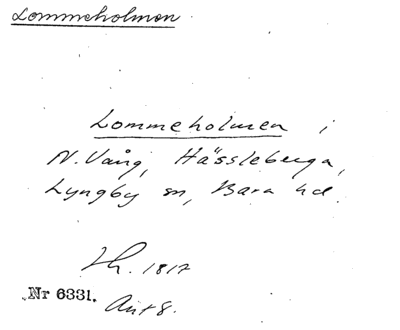 Lommeholmen
Lommeholmen i
N. Vång, Hässleberga,
Lyngby sn, Bara hd.
1817
Nr 6331.
Akt 8.